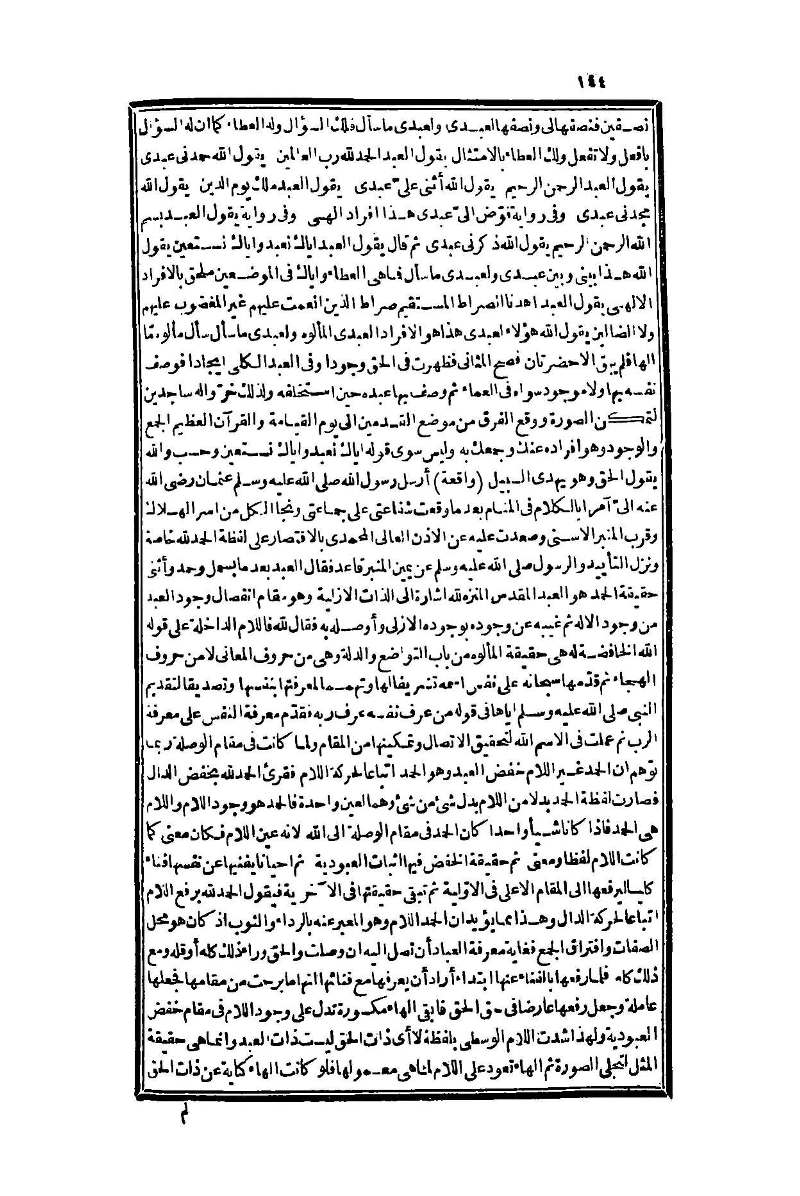 ١٤٤
نصفين فنصفها لى ونصفها لعبدى ولعبدى ما سأل فلك السؤال وله العطاء كما ان له السؤال
بافعل ولا تفعل ولك العطاء بالامتثال يقول العبد الحمد لله رب العالمين يقول الله حمدنى عبدى
يقول العبد الرحمن الرحيم يقول الله أثنى علىّ عبدى يقول العبد ملك يوم الدين يقول الله
مجدنى عبدى وفى رواية فوّض الىّ عبدى هذا افراد الهى وفى رواية يقول العبد بسم
الله الرحمن الرحيم يقول الله ذكرنى عبدى ثم قال يقول العبد اياك نعبد واياك نستعين يقول
الله هذا بينى وبين عبدى ولعبدى ما سأل فما هى العطاء واياك فى الموضعين ملحق بالافراد
الالهى يقول العبد اهدنا الصراط المستقيم صراط الذين انعمت عليهم غير المغضوب عليهم
ولا الضالين يقول الله هؤلاء لعبدى هذا هو الافراد العبدى المألوه ولعبدى ما سأل سأل مألوه ما
الها فلم يبق الا حضرتان فصح المثانى فظهرت فى الحق وجودا وفى العبد الكلى ايجادا فوصف
نفسه بها ولا موجود سواه فى العماء ثم وصف بها عبده حين استخلفه ولذلك خرّوا له ساجدين
لتمكن الصورة ووقع الفرق من موضع القدمين الى يوم القيامة والقرآن العظيم الجمع
والوجود وهو افراده عنك وجمعك به وليس سوى قوله اياك نعبد واياك نستعين وحسب والله
يقول الحق وهو يهدى السبيل (واقعة) أرسل رسول الله صلى الله عليه وسلم عثمان رضى الله
عنه الىّ آمرا بالكلام فى المنام بعد ما وقعت شفاعتى على جماعتى ونجا الكل من اسر الهلاك
وقرب المنبر الاسنى وصعدت عليه عن الاذن العالى المحمدى بالاقتصار على لفظة الحمد لله خاصة
ونزل التأييد والرسول صلى الله عليه وسلم عن يمين المنبر قاعد فقال العبد بعد ما بسمل وحمد وأثنى
حقيقة الحمد هو العبد المقدس المنزه لله اشارة الى الذات الازلية وهو مقام انفصال وجود العبد
من وجود الاله ثم غيبه عن وجوده بوجوده الازلى وأوصله به فقال لله فاللام الداخلة على قوله
الله الخافضة له هى حقيقة المألوه من باب التواضع والذلة وهى من حروف المعانى لا من حروف
الهجاء ثم قدّمها سبحانه على نفس اسمه تشريفا لها وتهمما لمعرفتها بنفسها وتصديقا لتقديم
النبى صلى الله عليه وسلم اياها فى قوله من عرف نفسه عرف ربه فقدّم معرفة النفس على معرفة
الرب ثم عملت فى الاسم الله لتحقيق الاتصال وتمكينها من المقام ولما كانت فى مقام الوصلة ربما
توهم ان الحمد غير اللام خفض العبد وهو الحمد اتباعا لحركة اللام فقرئ الحمد لله بخفض الدال
فصارت لفظة الحمد بدلا من اللام بدل شئ من شئ وهما لعين واحدة فالحمد هو وجود اللام واللام
هى الحمد فاذا كانا شيأ واحدا كان الحمد فى مقام الوصلة الى الله لانه عين اللام فكان معنى كما
كانت اللام لفظا ومعنى ثم حقيقة الخفض فيها اثبات العبودية ثم احيانا يفنيها عن نفسها فناء
كليا ليرفعها الى المقام الاعلى فى الاوّلية ثم تبقى حقيقتها فى الآخرية فيقول الحمد لله برفع اللام
اتباعا لحركة الدال وهذا مما يؤيد ان الحمد اللام وهو المعبر عنه بالرداء والثوب اذ كان هو محل
الصفات وافتراق الجمع فغاية معرفة العباد أن تصل اليه ان وصلت والحق وراء ذلك كله أو قل ومع
ذلك كله فلما رفعها بالفناء عنها ابتداء أراد أن يعرفها مع فنائها انها ما برحت من مقامها فجعلها
عاملة وجعل رفعها عارضا فى حق الحق فابقى الهاء مكسورة تدل على وجود اللام فى مقام خفض
العبودية ولهذا شدت اللام الوسطى بلفظة لا أى ذات الحق ليست ذات العبد وانما هى حقيقة
المثل لتجلى الصورة ثم الهاء تعود على اللام لما هى معمولها فلو كانت الهاء كناية عن ذات الحق
لم